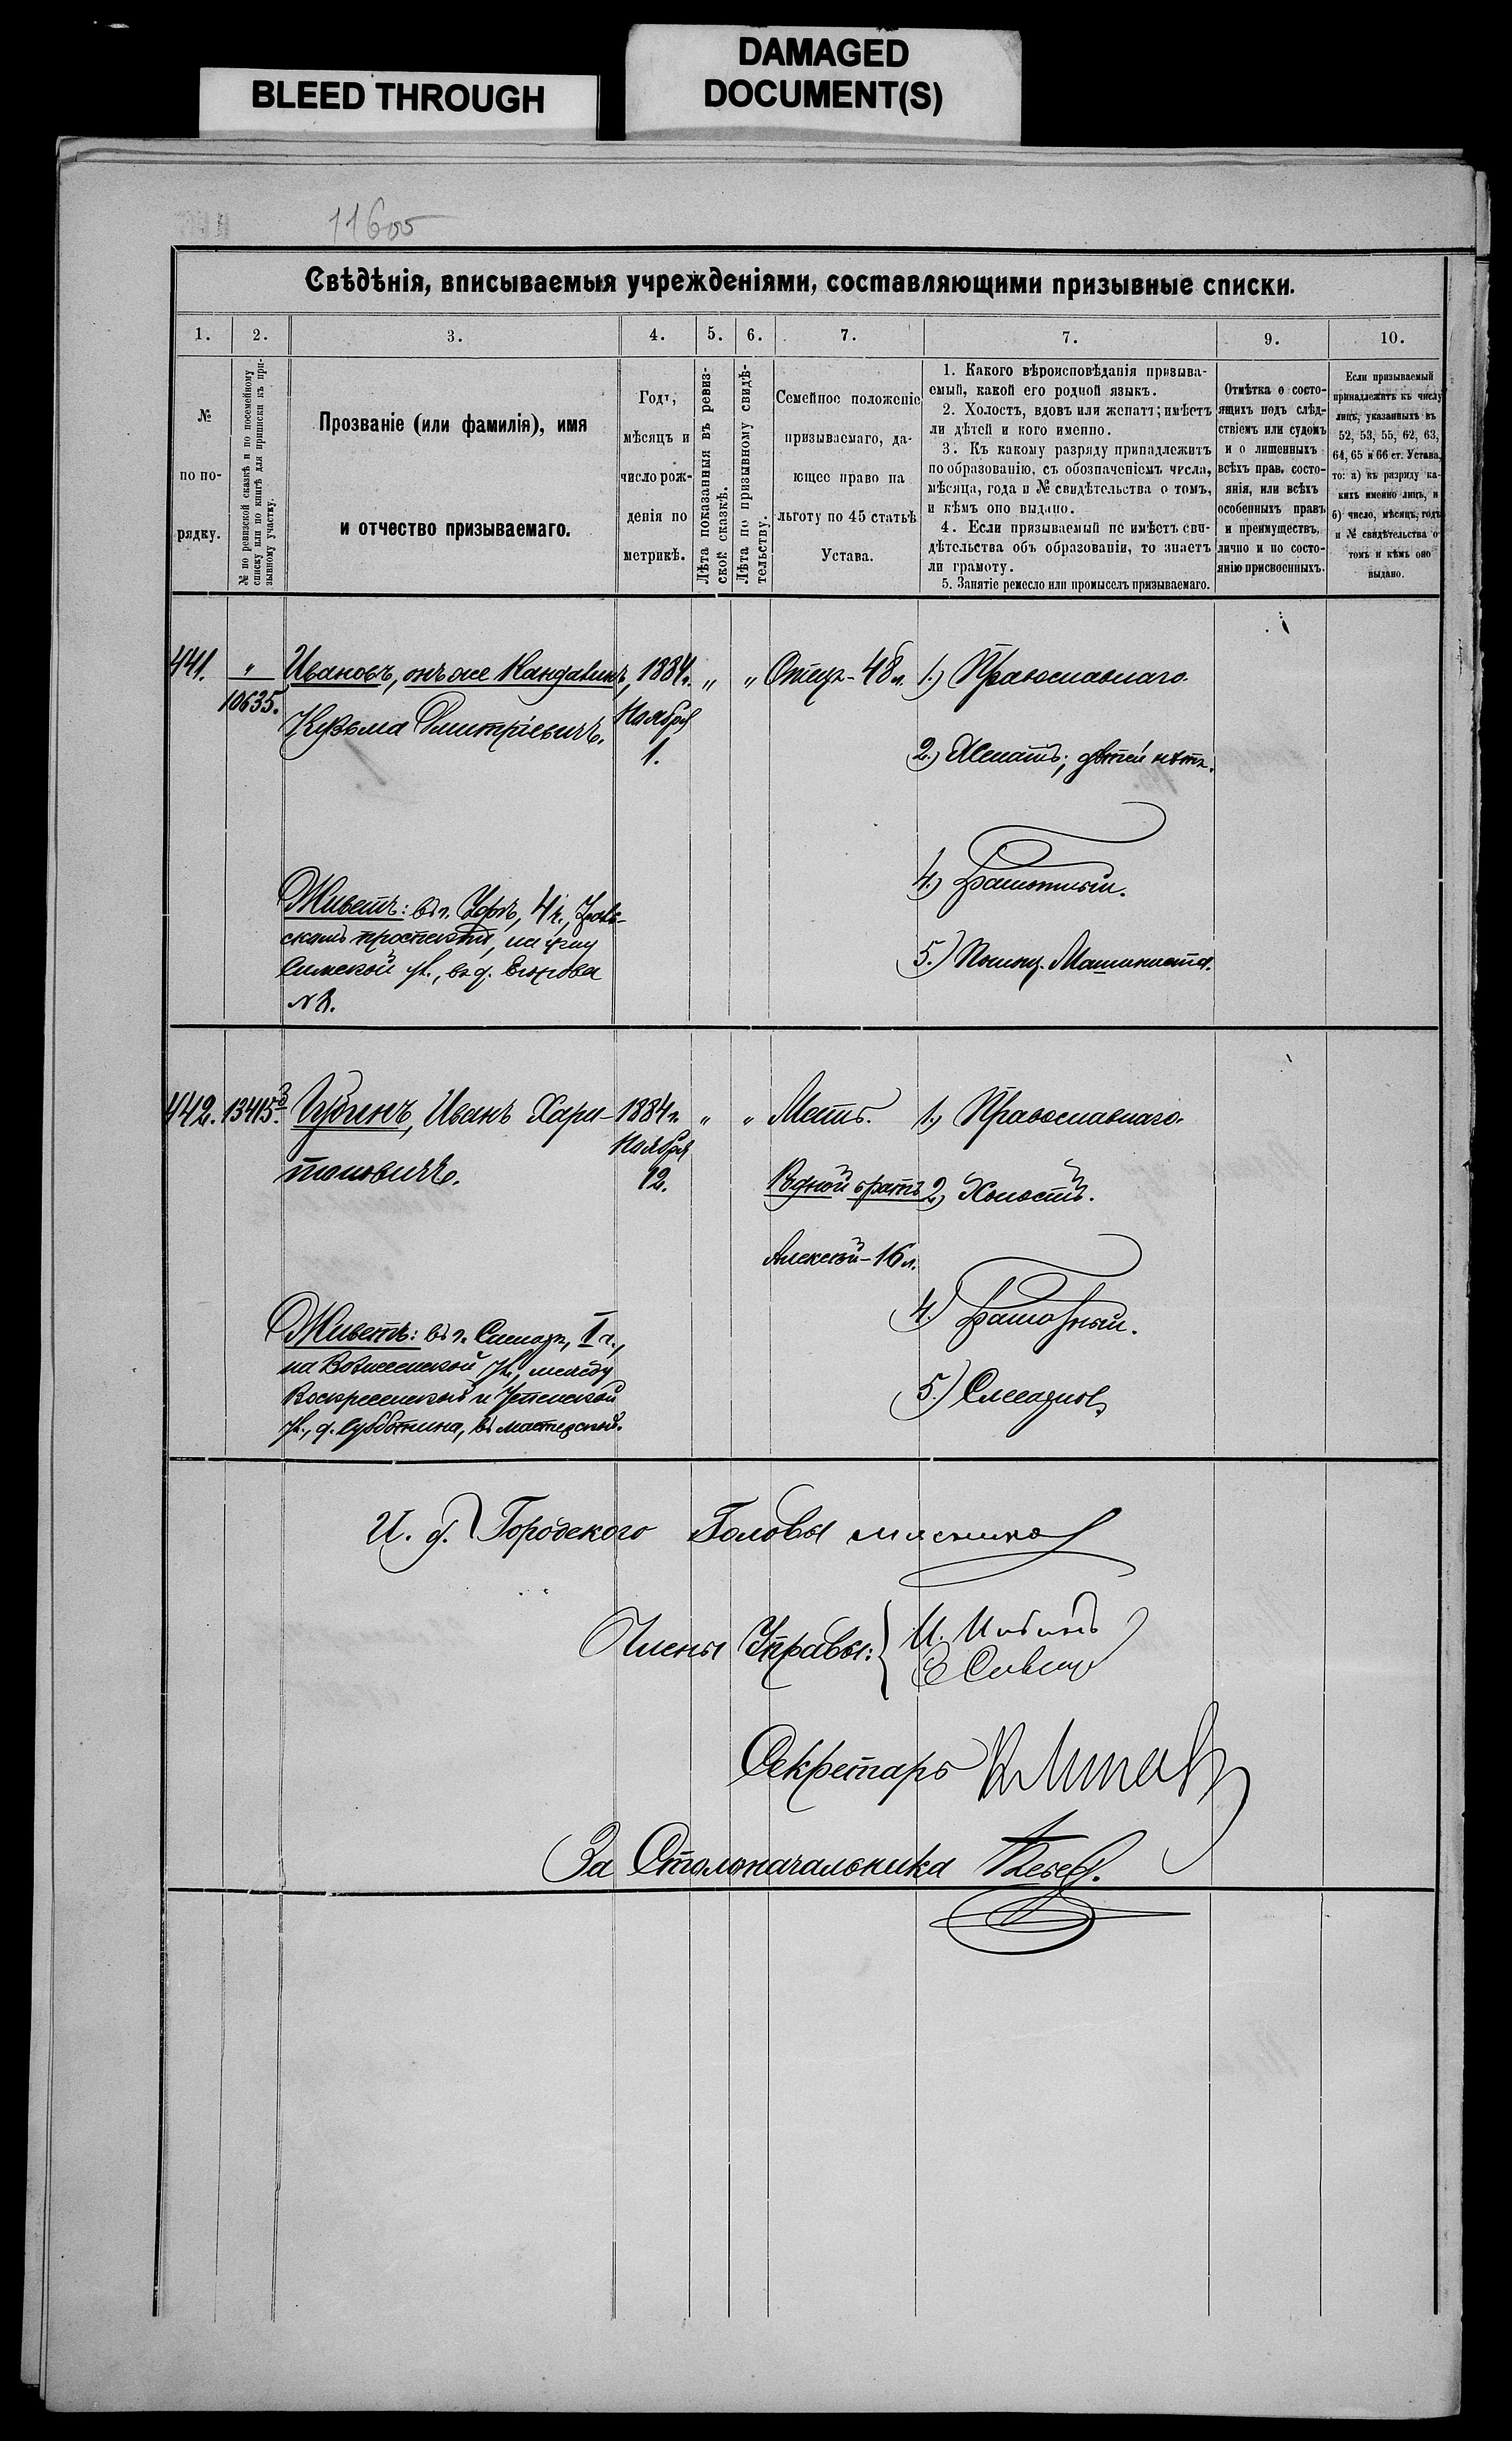 BLEED THROUGH
DAMAGED
DOCUMENT(S)
Свѣдѣнія, вписываемыя учрежденіями, составляющими призывные списки.
1. 2. 3. 4. 5. 6. 7. 7. 9. 10.
№
по по-
рядку.
№ по ревизской сказкѣ и по посемейному
списку или по книгѣ для приписки къ при-
зывному участку.
Прозваніе (или фамилія), имя
и отчество призываемаго.
Годъ,
мѣсяцъ и
число рож-
денія по
метрикѣ.
Лѣта показанныя въ ревиз-
ской сказкѣ.
Лѣта по призывному свидѣ-
тельству.
Семейное положеніе
призываемаго, да-
ющее право на
льготу по 45 статьѣ
Устава.
1. Какого вѣроисповѣданія призыва-
емый, какой его родной языкъ.
2. Холостъ, вдовъ или женатъ; имѣетъ
ли дѣтей и кого именно.
3. Къ какому разряду принадлежитъ
по образованію, съ обозначеніемъ числа,
мѣсяца, года и № свидѣтельства о томъ,
и кѣмъ оно выдано.
4. Если призываемый не имѣетъ сви-
дѣтельства объ образованіи, то знаетъ
ли грамоту.
5. Занятіе ремесло или промыселъ призываемаго.
Отмѣтка о состо-
ящихъ подъ слѣд-
ствіемъ или судомъ
и о лишенныхъ
всѣхъ прав. состо-
янія, или всѣхъ
особенныхъ правъ
и преимуществъ,
лично и по состо-
янію присвоенныхъ.
Если призываемый
принадлежитъ къ числу
лицъ, указанныхъ въ
52, 53, 55, 62, 63,
64, 65 и 66 ст. Устава,
то: а) къ разряду ка-
кихъ именно лицъ, и
б) число, мѣсяцъ, годъ
и № свидѣтельства о
томъ и кѣмъ оно
выдано.
441.
"
10635.
Ивановъ, онъ же Кандалинъ,
Кузьма Дмитріевичъ.
Живетъ: въ г. Уфѣ, 4 ч.,
скомъ проспектѣ, на углу
Симской ул., въ д. Егорова
1884 г.
Ноября
1.
" "
Отецъ - 48 л.
1.) Православнаго.
2.) Женатъ; дѣтей нѣтъ.
4.) Грамотный.
5.) Помощ. Машиниста.
442.
13415
Губинъ, Иванъ Хари-
тоновичъ.
Живетъ: въ г. Самарѣ, I ч.,
на Вознесенской ул., между
Воскресенской и Успенской
ул., д. Субботина, въ мастерской.
1884 г.
Ноября
12.
" "
Мать.
Родной братъ
Алексѣй - 16 л.
1.) Православнаго.
2.) Холостъ.
4.) Грамотный.
5.) Слесарь.
И. д. Городского Головы
Члены Управы:
Секретарь
За Столоначальника